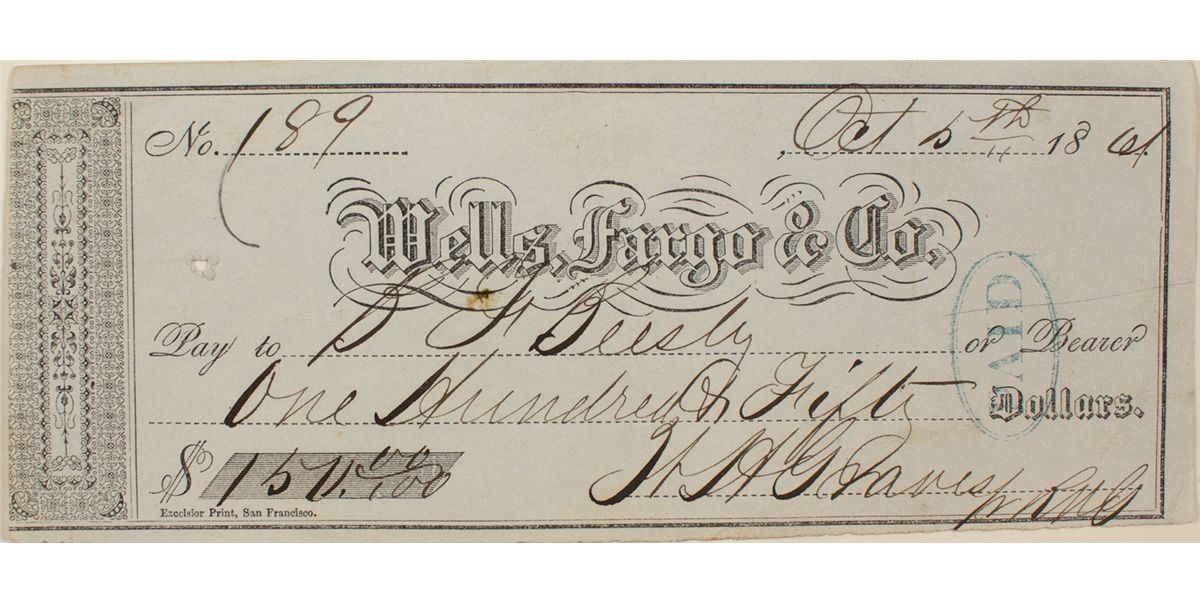 No. 189
Oct 5th 1861
Wells, Fargo & Co.
Pay to Beesly or Bearer
One Hundred & Fifty Dollars.
$ 150.00/100
W H Graves
PAID
Excelsior Print, San Francisco.